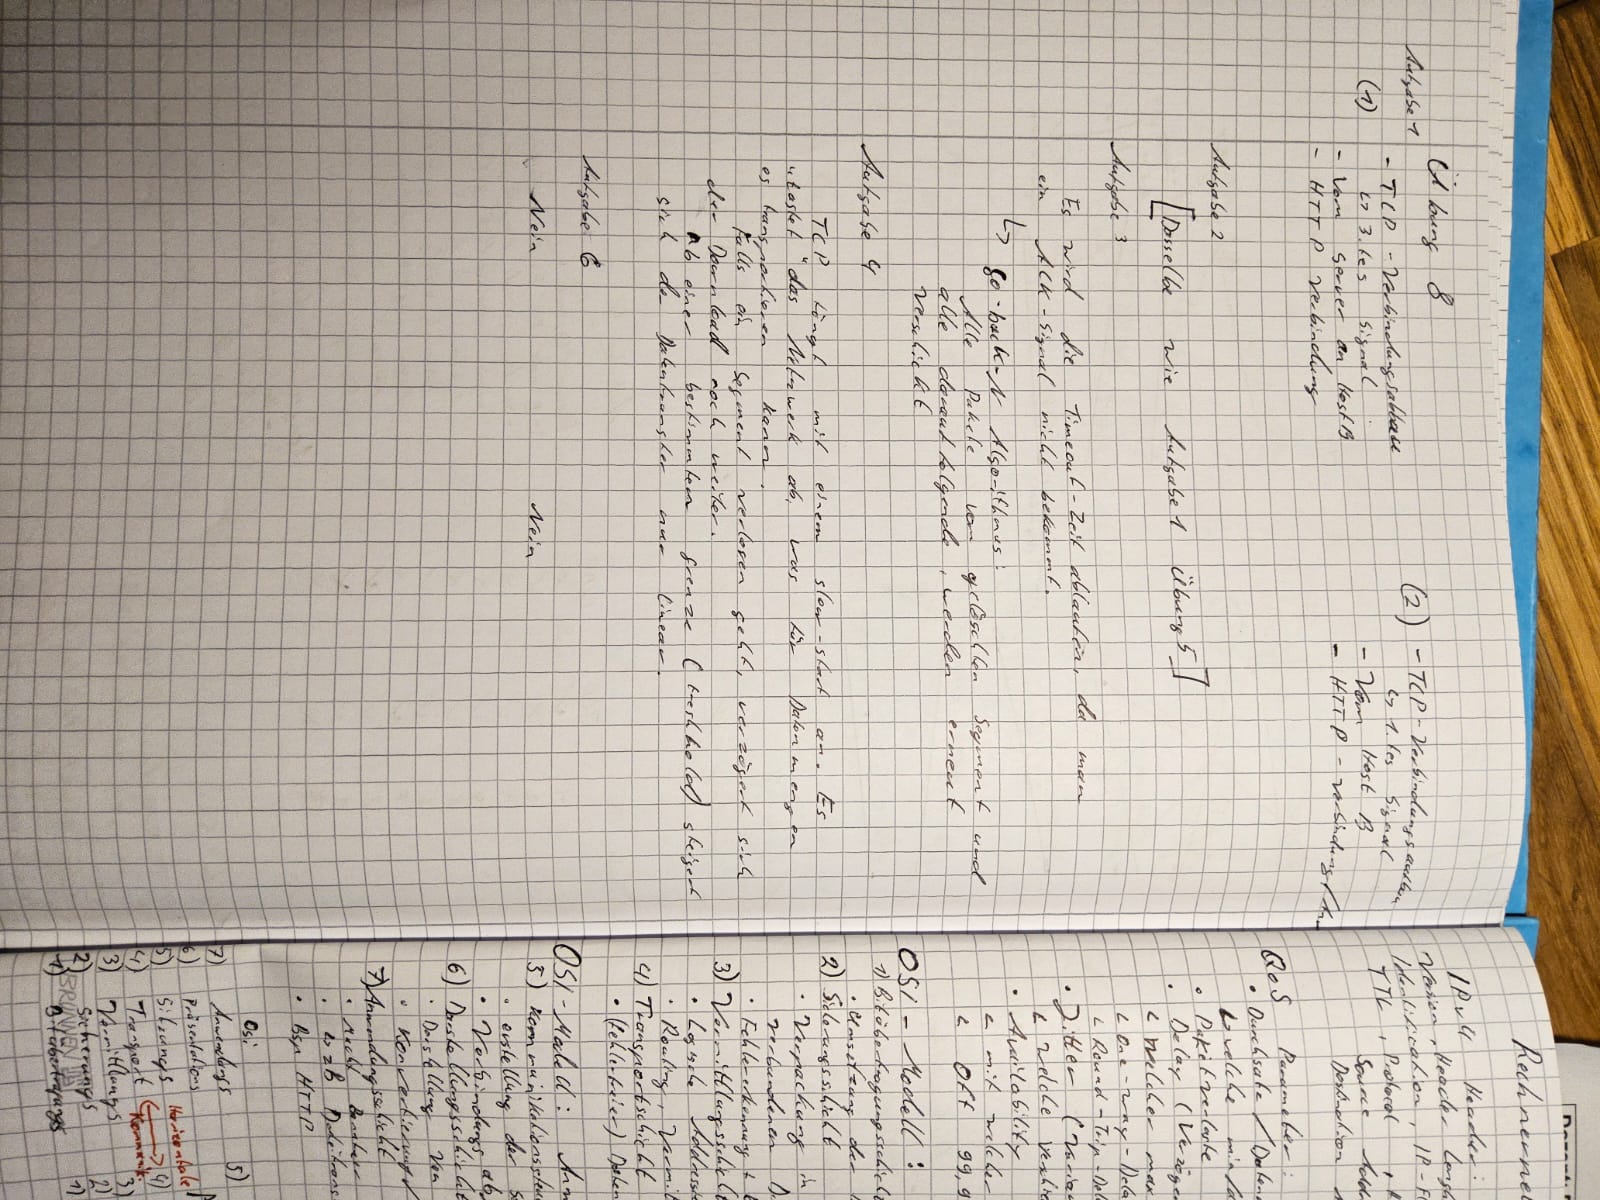 Übung 8
Aufgabe 1
(1)
- TCP - Verbindungsabbau
↳ 3.tes Signal
- Vom Server an Host B
- HTTP Verbindung
(2) - TCP - Verbindungsaufbau
↳ 1.tes Signal
- Vom Host B
- HTTP - Verbindung
Aufgabe 2
[Dasselbe wie Aufgabe 1 Übung 5]
Aufgabe 3
Es wird die Timeout-Zeit ablaufen, da man
ein ACK-Signal nicht bekommt.
↳ go-back-N Algorithmus:
Alle Pakete vom gelöschten Segment und
alle darauf folgende, werden erneut
verschickt
Aufgabe 4
TCP fängt mit einem slow-start an. Es
"tastet" das Netzwerk ab, was für Datenmengen
es transportieren kann.
Falls ein Segment verloren geht, verzögert sich
der Download noch weiter.
Ab einer bestimmten grenze (treshhold) steigert
sich der Datentransfer nur linear.
Aufgabe 6
Nein Nein
Dozent:
Rechnernet
IPv4 Header:
Version, Header Length
Identification, IP-Fl
TTL, Protocol,
Source Addr
Destination A
QoS Parameter:
• Durchsatz / Daten
↳ welche min/
• Paketverluste
• Delay (Verzöger
↳ Welcher max
↳ One-way-Dela
↳ Round-Trip-Del
• Jitter (Varia
↳ welche Verschi
• Availability
↳ mit welcher
↳ Oft 99,9
OSI - Modell:
1) Bitübertragungsschicht
• Umsetzung der
2) Sicherungsschicht
• Verpackung in
verbundenen D
• Fehlererkennung +
3) Vermittlungsschicht
• Logische Addresse
• Routing, Vermit
4) Transportschicht
• (fehlerfreier) Daten
OSI-Modell: Anw
5) Kommunikationssteu
• erstellung der S
• Verbindungs ab
6) Darstellungsschicht
• Darstellung von
• Konvertierung/
7) Anwendungsschicht
• Macht Benutzer
• ↳ zB Dateitrans
• Bsp HTTP
Osi
7) Anwendungs 5)
6) Präsentations
5) Sitzungs Horizontale
4) Transport Kommunik. 4)
3) Vermittlungs 3)
2) Sicherungs 2)
BRUNNEN
1) Bitübertragungs 1)